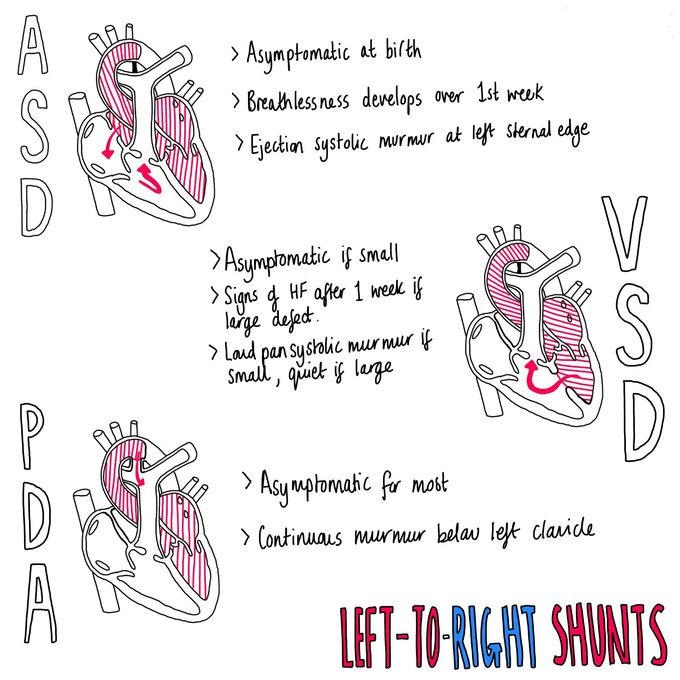 ASD
> Asymptomatic at birth
> Breathlessness develops over 1st week
> Ejection systolic murmur at left sternal edge
VSD
> Asymptomatic if small
> Signs of HF after 1 week if
large defect.
> Loud pansystolic murmur if
small, quiet if large
PDA
> Asymptomatic for most
> Continuous murmur below left clavicle
LEFT-TO-RIGHT SHUNTS